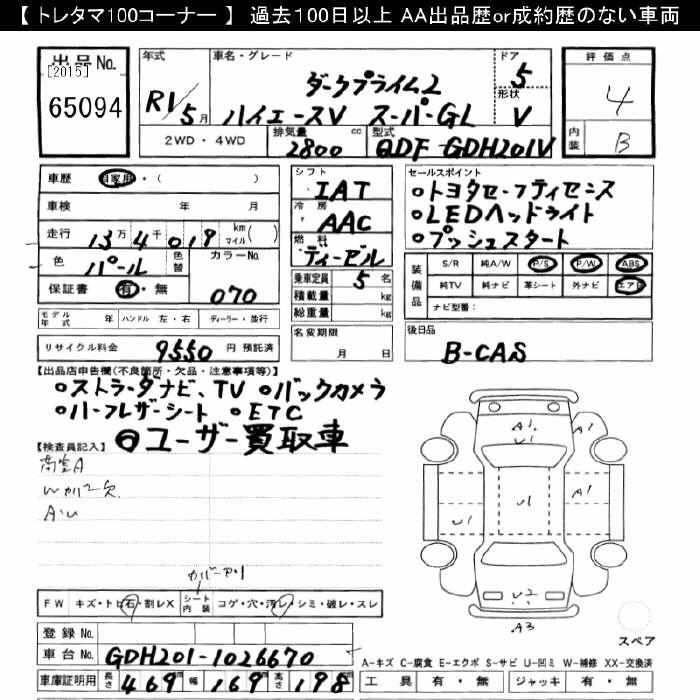 【 トレタマ100コーナー 】 過去100日以上 AA出品歴or成約歴のない車両
出品No.
[2015]
65094
年式
R1/5月
車名・グレード
ダークプライム2
ハイエースV スーパーGL
ドア
5
形状
V
評価点
4
内装
B
2WD・4WD
排気量 2800 cc
型式 QDF-GDH201V
車歴 自家用・( )
車検 年 月
走行 13万4千019 km マイル( )
色 パール 色替 カラーNo.
保証書 有・無 070
モデル年式 年 ハンドル 左・右 ディーラー・並行
リサイクル料金 9550 円 預託済
シフト IAT
冷房 AAC
燃料 ディーゼル
乗車定員 5 名
積載量 kg
総重量 kg
名変期限
月 日
セールスポイント
○トヨタセーフティセンス
○LEDヘッドライト
○プッシュスタート
装備品
S/R 純A/W P/S P/W ABS
純TV 純ナビ 革シート 外ナビ エアB
ナビ型番:
後日品
B-CAS
【出品店申告欄(不良箇所・欠品・注意事項等)】
○ストラーダナビ、TV ○バックカメラ
○ハーフレザーシート ○ETC
ユーザー買取車
【検査員記入】
A・U
A1
U1
A1
U1
A1
U1
U2
A3
スペア
カバーアリ
FW キズ・トビ石・割レX シート内装 コゲ・穴・汚レ・シミ・破レ・スレ
登録No.
車台No. GDH201-1026670
車庫証明用 長さ 469 幅 169 高さ 198
A-キズ C-腐食 E-エクボ S-サビ U-凹ミ W-補修 XX-交換済
工具 有・無 ジャッキ 有・無